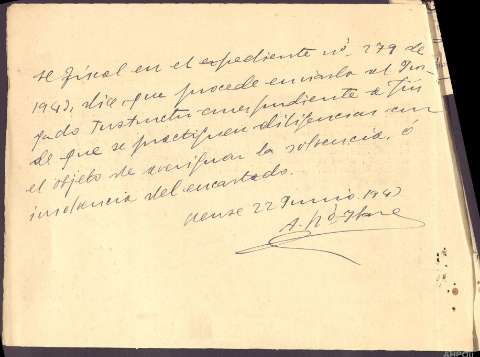 El Fiscal en el expediente nº 279 de
1943, dice que procede enviarlo al Juz-
gado Instructor correspondiente a fin
de que se practiquen diligencias con
el objeto de averiguar la solvencia, ó
insolvencia del encartado.
Orense 22 Junio 1943
AHPOU